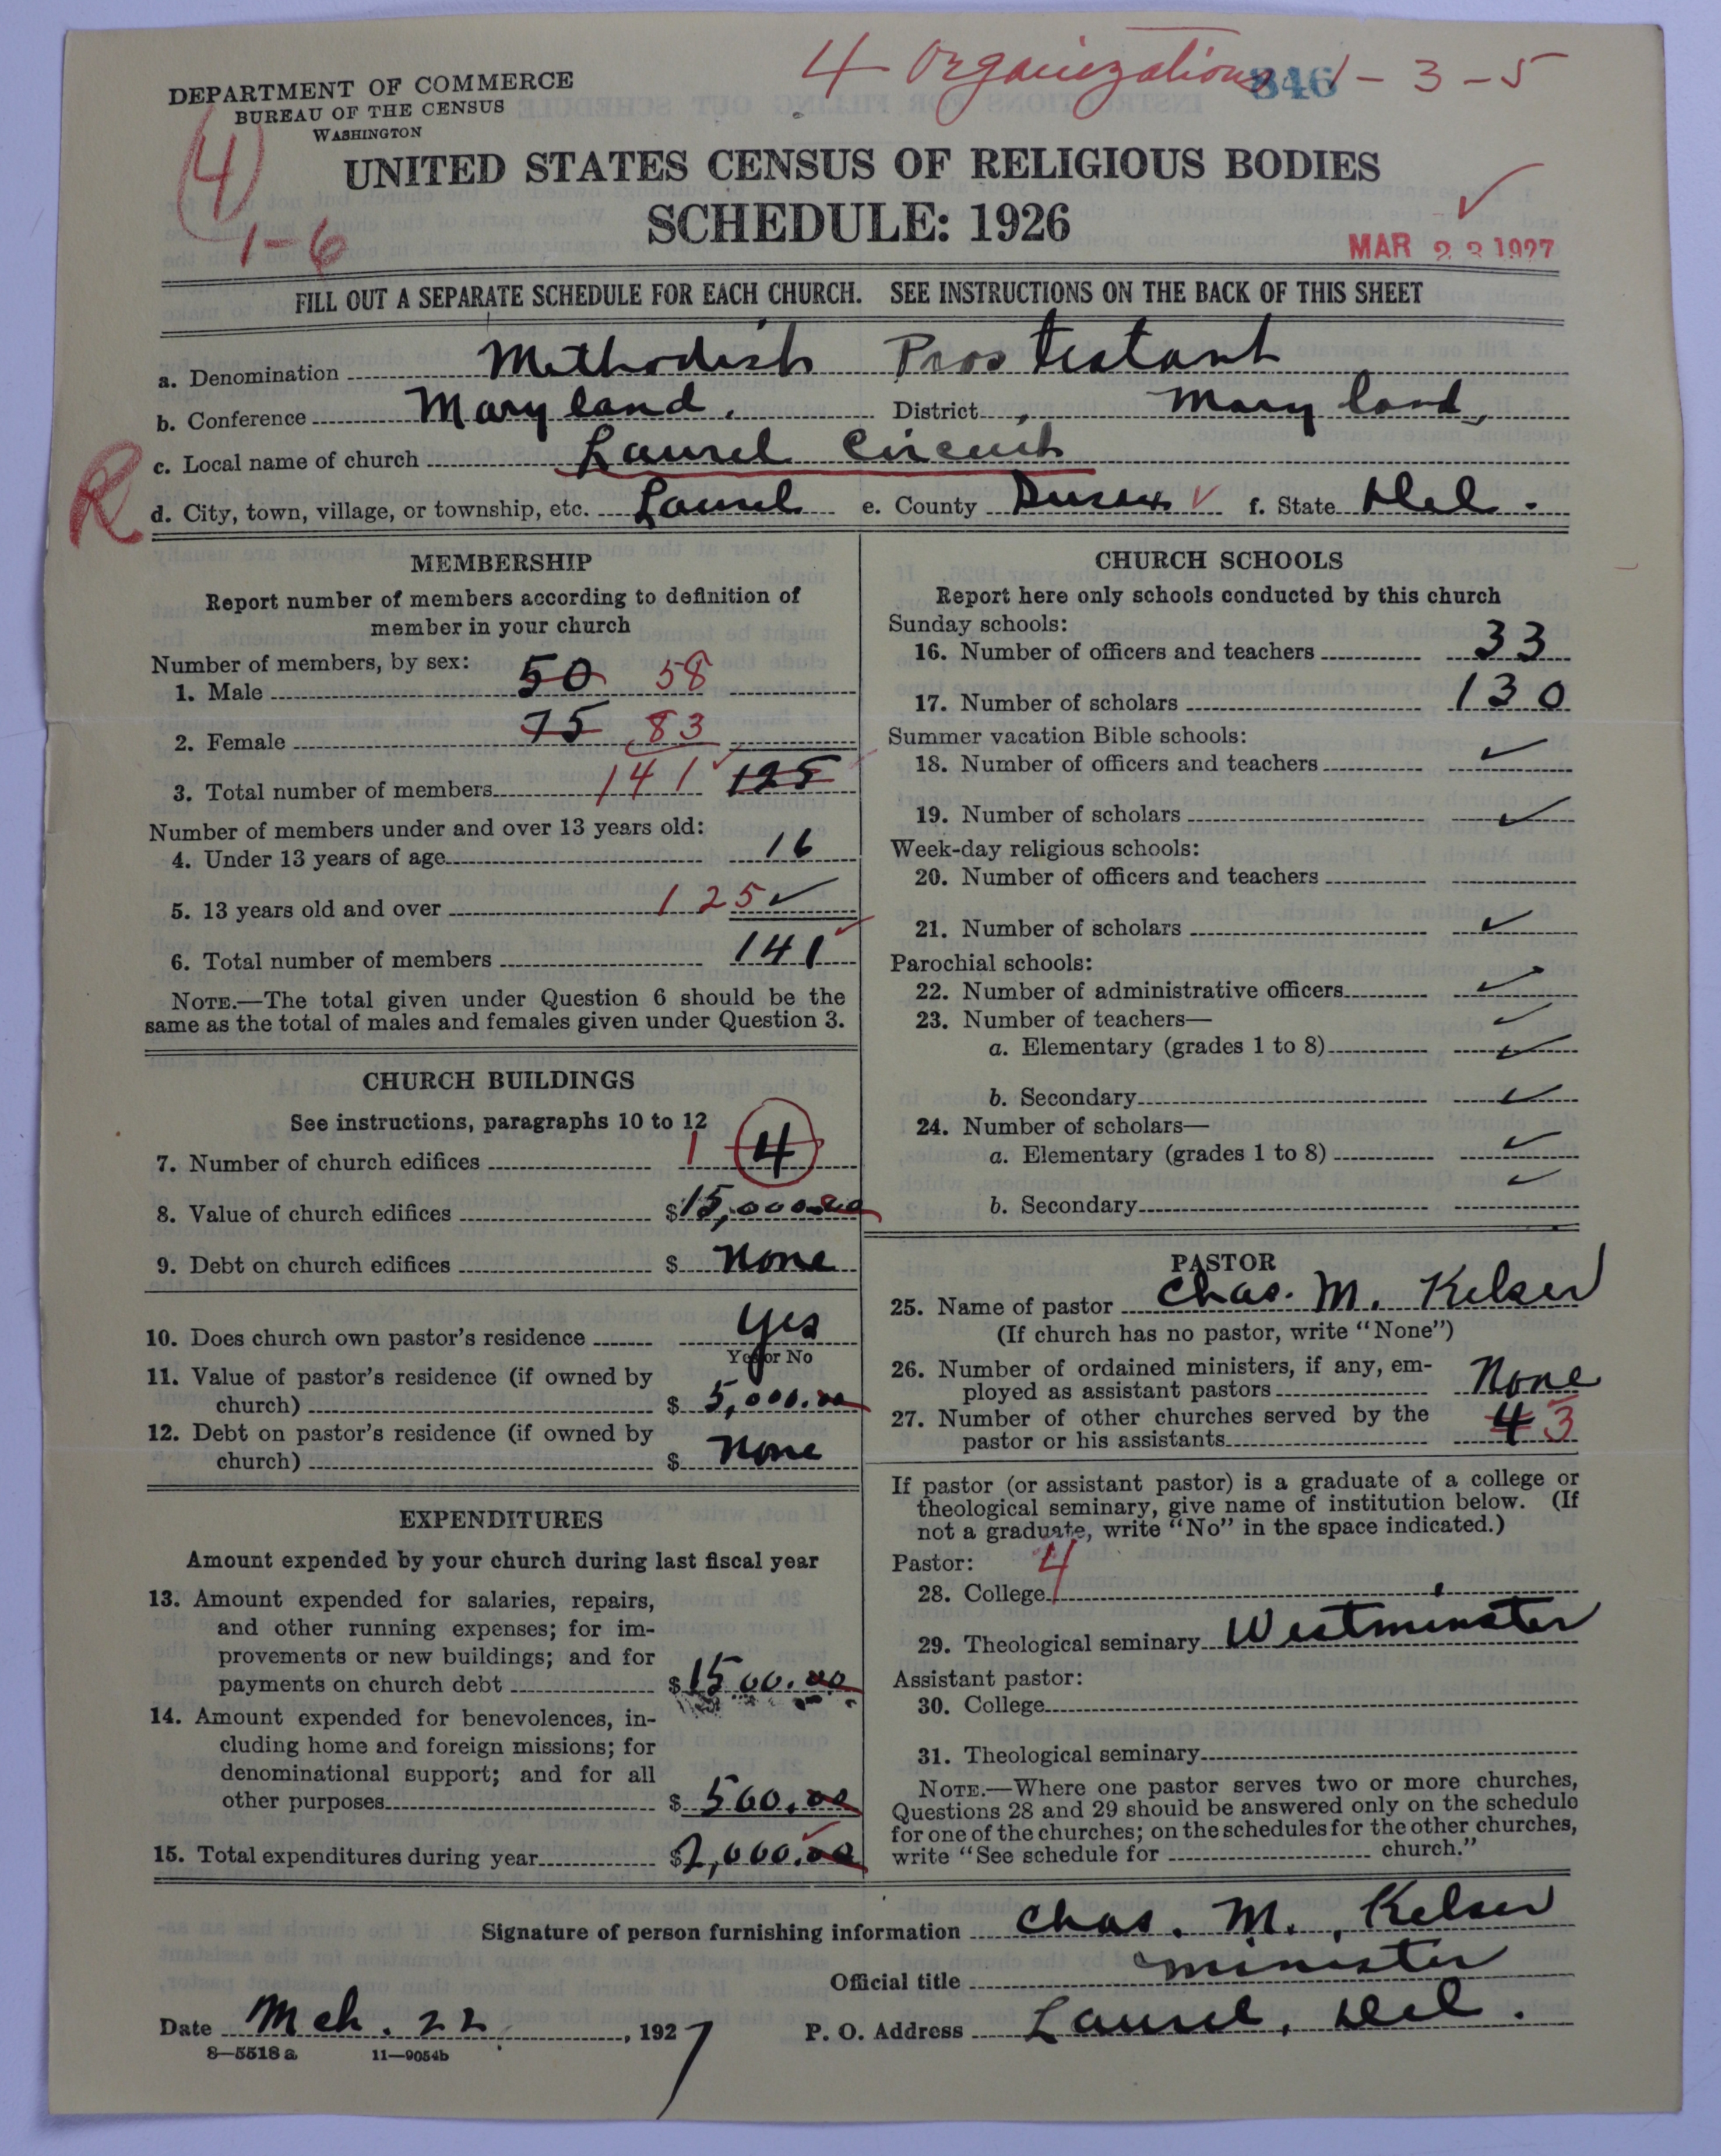 4 Organizations 1-3-5
846
DEPARTMENT OF COMMERCE
BUREAU OF THE CENSUS
WASHINGTON
4
1-6
UNITED STATES CENSUS OF RELIGIOUS BODIES
SCHEDULE: 1926
MAR 23 1927
FILL OUT A SEPARATE SCHEDULE FOR EACH CHURCH. SEE INSTRUCTIONS ON THE BACK OF THIS SHEET
a. Denomination Methodist Prostestant
b. Conference Maryland. District Maryland,
R
c. Local name of church Laurel Circuit
d. City, town, village, or township, etc. Laurel e. County Sussex f. State Del.
MEMBERSHIP
Report number of members according to definition of
member in your church
Number of members, by sex:
1. Male 50 58
2. Female 75 83
3. Total number of members 141 125
Number of members under and over 13 years old:
4. Under 13 years of age 16
5. 13 years old and over 125
6. Total number of members 141
NOTE.—The total given under Question 6 should be the
same as the total of males and females given under Question 3.
CHURCH BUILDINGS
See instructions, paragraphs 10 to 12
7. Number of church edifices 1 4
8. Value of church edifices $15,000.00
9. Debt on church edifices $ None
10. Does church own pastor's residence Yes
Yes or No
11. Value of pastor's residence (if owned by
church) $ 5,000.00
12. Debt on pastor's residence (if owned by
church) $ None
EXPENDITURES
Amount expended by your church during last fiscal year
13. Amount expended for salaries, repairs,
and other running expenses; for im-
provements or new buildings; and for
payments on church debt $1500.00
14. Amount expended for benevolences, in-
cluding home and foreign missions; for
denominational support; and for all
other purposes $ 500.00
15. Total expenditures during year $2,000.00
CHURCH SCHOOLS
Report here only schools conducted by this church
Sunday schools:
16. Number of officers and teachers 33
17. Number of scholars 130
Summer vacation Bible schools:
18. Number of officers and teachers
19. Number of scholars
Week-day religious schools:
20. Number of officers and teachers
21. Number of scholars
Parochial schools:
22. Number of administrative officers
23. Number of teachers—
a. Elementary (grades 1 to 8)
b. Secondary
24. Number of scholars—
a. Elementary (grades 1 to 8)
b. Secondary
PASTOR
25. Name of pastor Chas. M. Kelser
(If church has no pastor, write "None")
26. Number of ordained ministers, if any, em-
ployed as assistant pastors None
27. Number of other churches served by the
pastor or his assistants 4 3
If pastor (or assistant pastor) is a graduate of a college or
theological seminary, give name of institution below. (If
not a graduate, write "No" in the space indicated.)
Pastor: 4
28. College
29. Theological seminary Westminster
Assistant pastor:
30. College
31. Theological seminary
NOTE.—Where one pastor serves two or more churches,
Questions 28 and 29 should be answered only on the schedule
for one of the churches; on the schedules for the other churches,
write "See schedule for church."
Signature of person furnishing information Chas. M. Kelser
Official title minister
Date Mch. 22, 1927 P. O. Address Laurel, Del.
8—5518 a 11—9054b